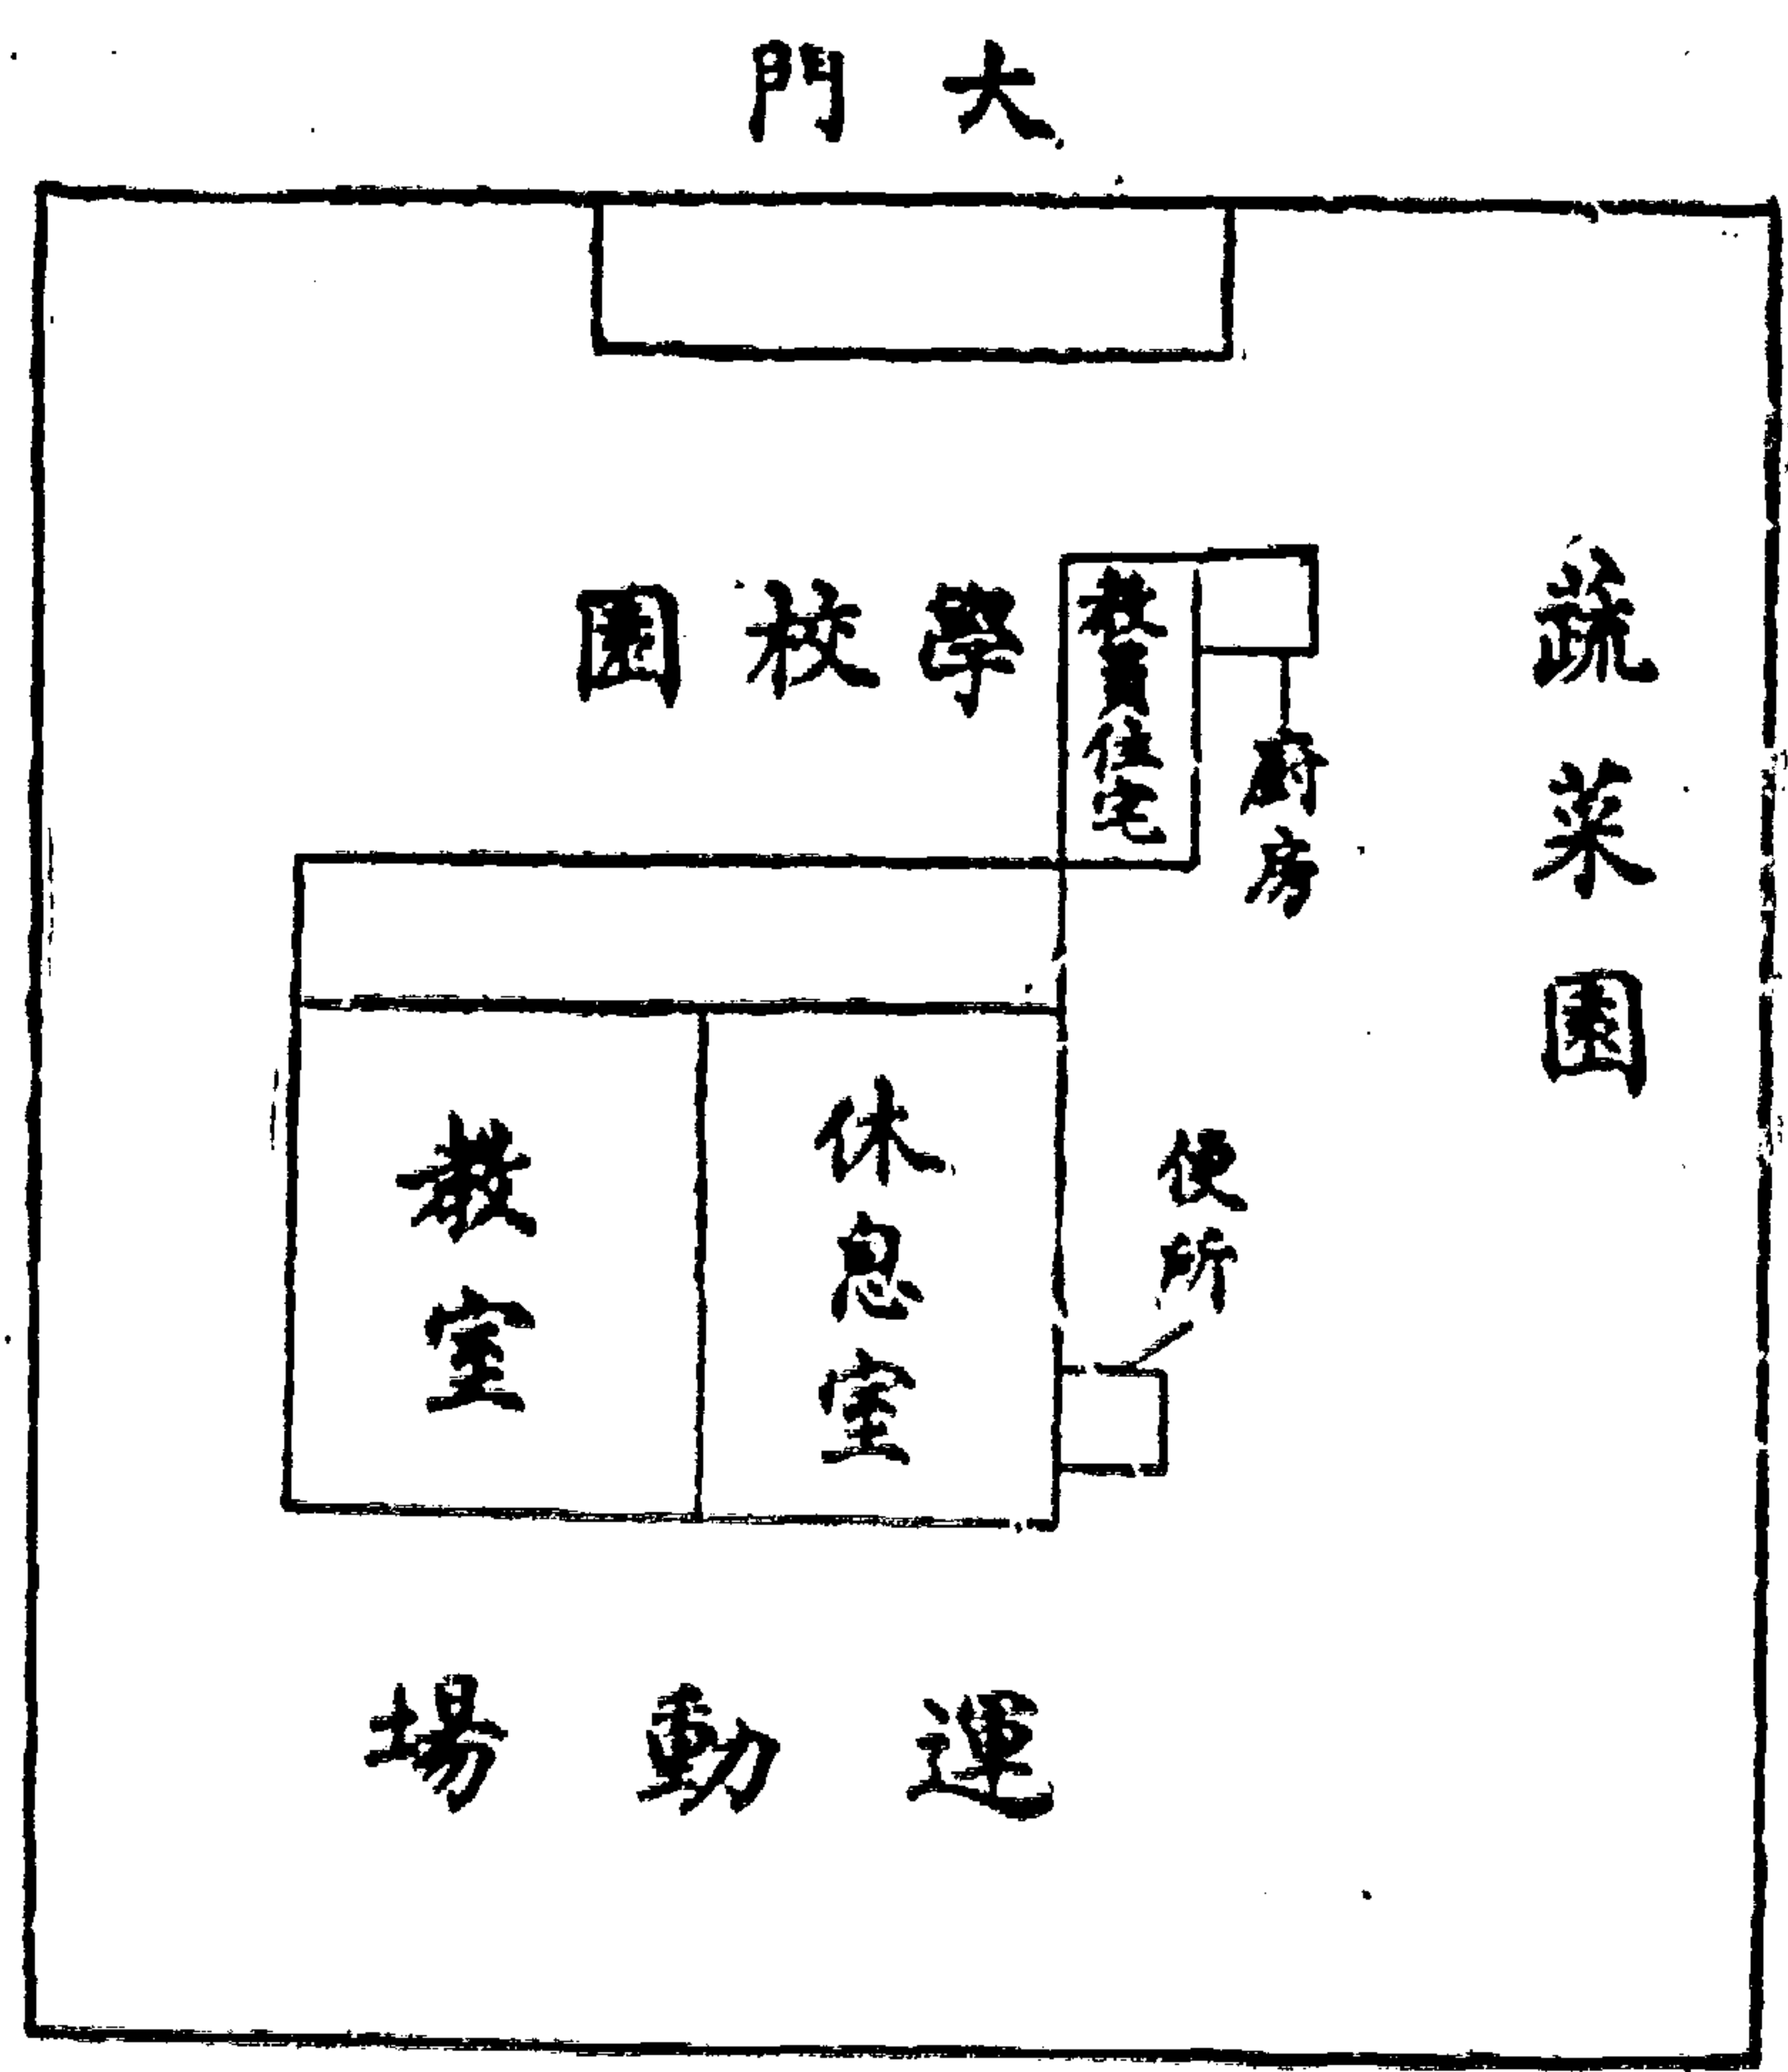 大門
學校園
教員住宅
廚房
蔬菜園
休息室
教室
便所
運動場